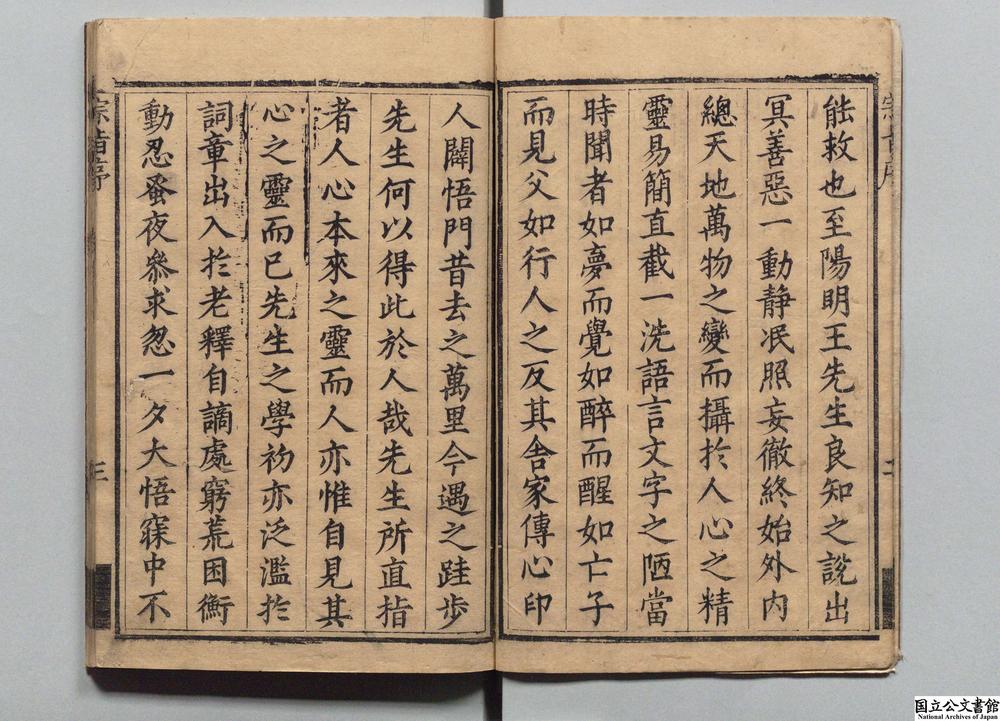 能救也至陽明王先生良知之說出
冥善惡一動靜冺照妄徹終始外内
緫天地萬物之變而攝於人心之精
靈易簡直截一洗語言文字之陋當
時聞者如夢而覺如醉而醒如亡子
而見父如行人之反其舍家傳心印
人闢悟門昔去之萬里今遇之跬步
先生何以得此於人哉先生所直指
者人心本來之靈而人亦惟自見其
心之靈而已先生之學初亦泛濫於
詞章出入於老釋自謫處窮荒困衡
動忍蚤夜參求忽一夕大悟寐中不
宗旨序
三
国立公文書館
National Archives of Japan